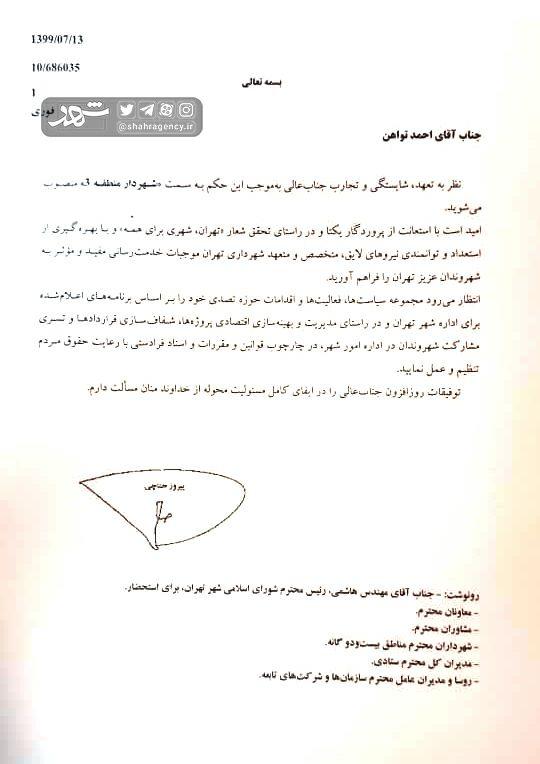 1399/07/13
10/686035
1
فوری
شهر
@shahragency.ir
بسمه تعالی
جناب آقای احمد تواهن
نظر به تعهد، شایستگی و تجارب جناب‌عالی به‌موجب این حکم به سمت «شهردار منطقه 3» منصوب
می‌شوید.
امید است با استعانت از پروردگار یکتا و در راستای تحقق شعار «تهران، شهری برای همه» و با بهره‌گیری از
استعداد و توانمندی نیروهای لایق، متخصص و متعهد شهرداری تهران موجبات خدمت‌رسانی مفید و مؤثر به
شهروندان عزیز تهران را فراهم آورید.
انتظار می‌رود مجموعه سیاست‌ها، فعالیت‌ها و اقدامات حوزه تصدی خود را بر اساس برنامه‌های اعلام‌شده
برای اداره شهر تهران و در راستای مدیریت و بهینه‌سازی اقتصادی پروژه‌ها، شفاف‌سازی قراردادها و تسری
مشارکت شهروندان در اداره امور شهر، در چارچوب قوانین و مقررات و اسناد فرادستی با رعایت حقوق مردم
تنظیم و عمل نمایید.
توفیقات روزافزون جناب‌عالی را در ایفای کامل مسئولیت محوله از خداوند منان مسألت دارم.
پیروز حناچی
رونوشت: - جناب آقای مهندس هاشمی، رئیس محترم شورای اسلامی شهر تهران، برای استحضار.
- معاونان محترم.
- مشاوران محترم.
- شهرداران محترم مناطق بیست‌ودو گانه.
- مدیران کل محترم ستادی.
- روسا و مدیران عامل محترم سازمان‌ها و شرکت‌های تابعه.